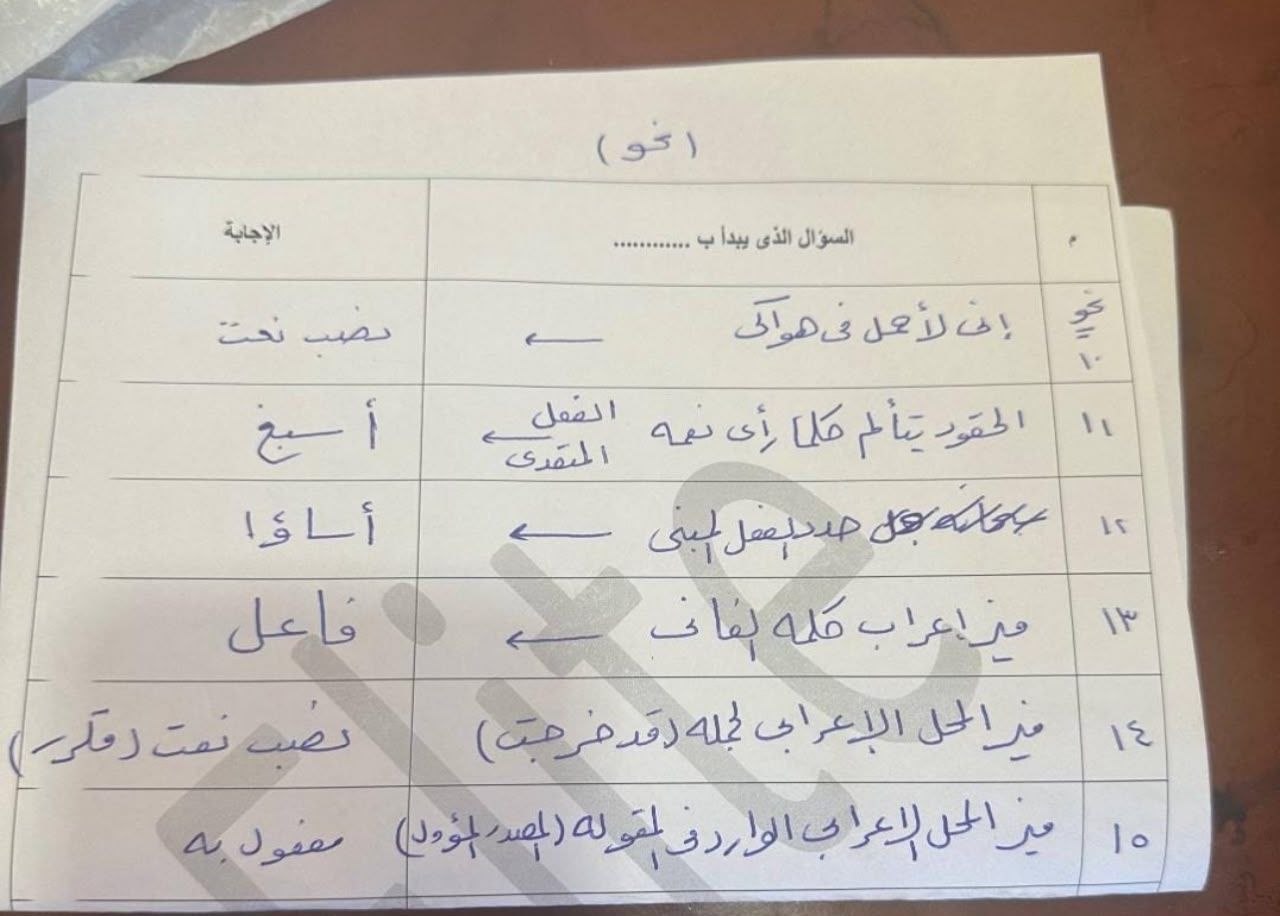 (نحو)
م السؤال الذى يبدأ ب ............ الإجابة
نحو ١٠ إنى لأحمل فى هواكى ← نصب نعت
١١ الحقود يتألم كلما رأى نعمه الفعل المتعدى ← أسبغ
١٢ حدد الفعل المبنى ← أساؤا
١٣ ميز إعراب كلمه الفانى ← فاعل
١٤ ميز المحل الإعرابى لجمله (قد خرجت) نصب نعت (مكرر)
١٥ ميز المحل الإعرابى الوارد فى المقوله (المصدر المؤول) مفعول به
Elite